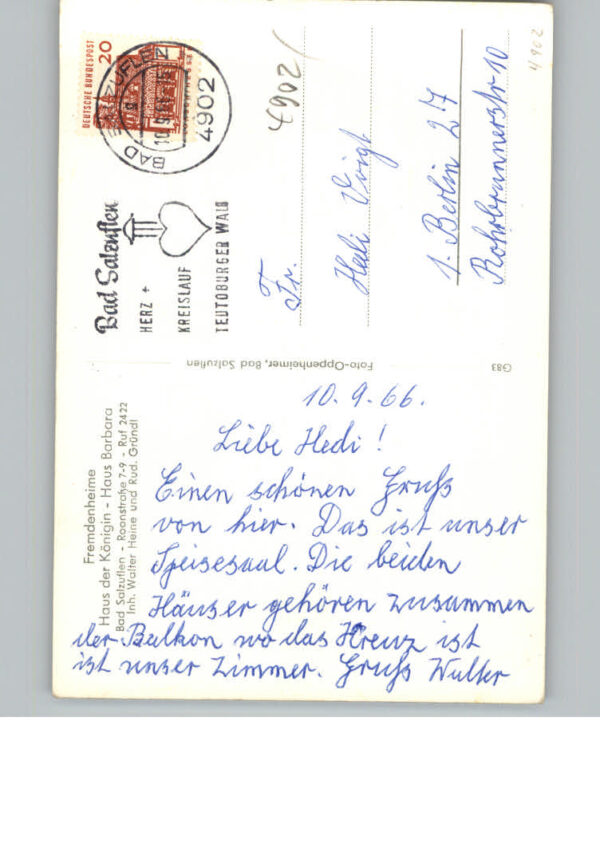 10.9.66.
Liebe Hedi!
Einen schönen Gruß
von hier. Das ist unser
Speisesaal. Die beiden
Häuser gehören zusammen
der Balkon wo das Kreuz ist
ist unser Zimmer. Gruß Walter
Fremdenheime
Haus der Königin - Haus Barbara
Bad Salzuflen - Roonstraße 7-9 - Ruf 2422
Inh. Walter Heine und Rud. Gründl
Foto-Oppenheimer, Bad Salzuflen
G83
DEUTSCHE BUNDESPOST
20
BAD SALZUFLEN
4902
Bad Salzuflen
HERZ +
KREISLAUF
TEUTOBURGER WALD
4902
4902
Fr.
Hedi Voigt
1. Berlin 27
Rohrbrunnerstr 10